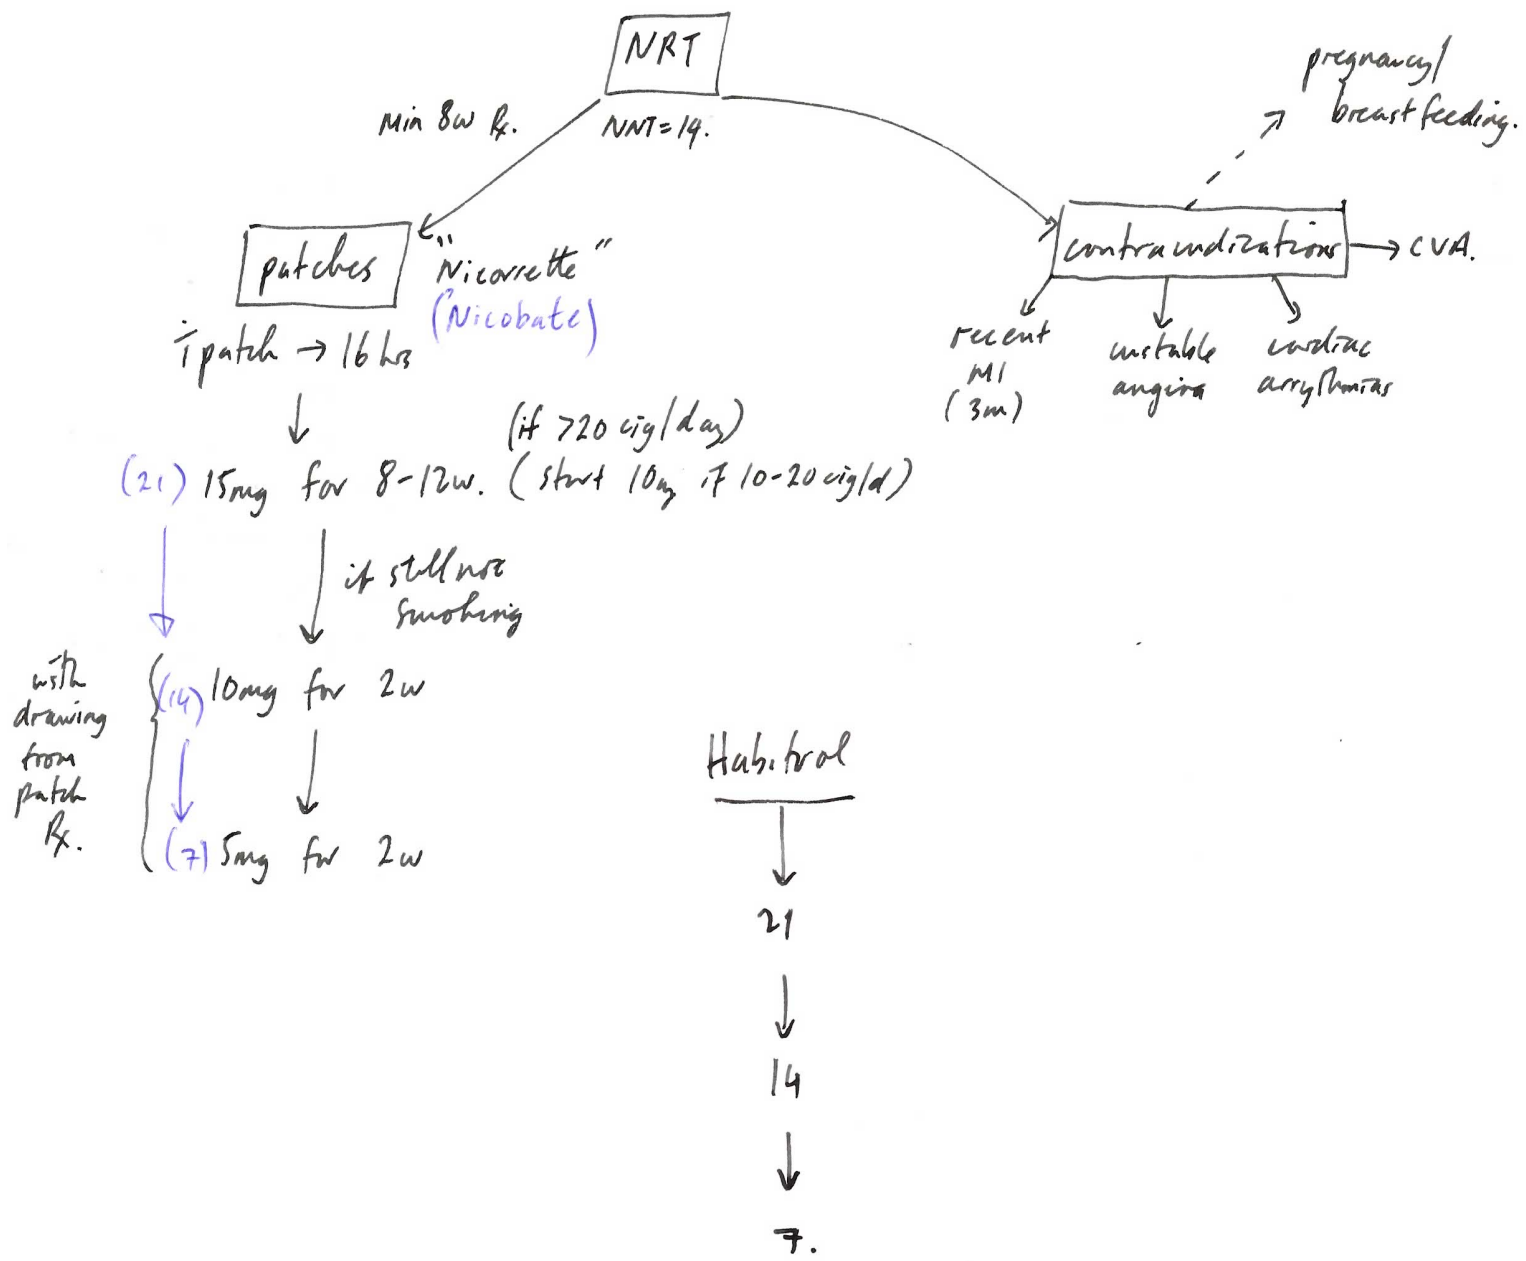 NRT
pregnancy/
breastfeeding.
Min 8w Rx.
NNT=14.
patches
"Nicorrette"
(Nicobate)
contraindizations
CVA.
recent
MI
(3m)
unstable
angina
cardiac
arrythmias
patch → 16 hrs
(if >20 cig/day)
(21) 15mg for 8-12w. (start 10mg if 10-20cig/d)
if still not
smoking
with
drawing
from
patch
Rx.
(14) 10mg for 2w
(7) 5mg for 2w
Habitrol
21
14
7.